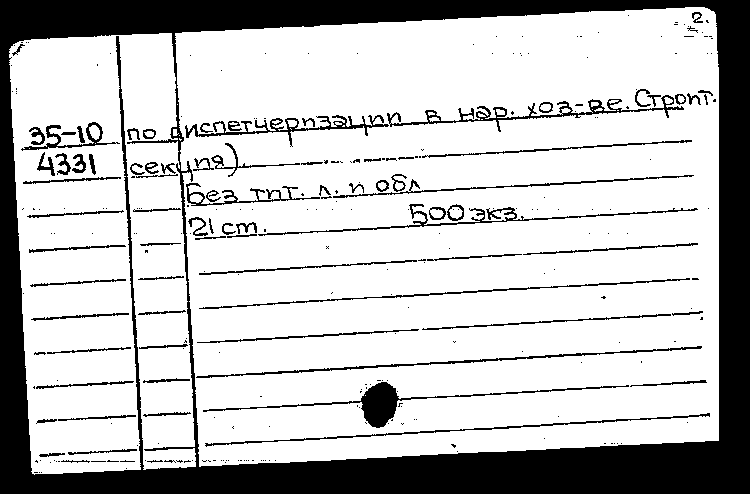 2.
35-10 по диспетчеризации в нар. хоз-ве. Строит.
4331 секция).
Без тит. л. и обл
21 cm. 500 экз.